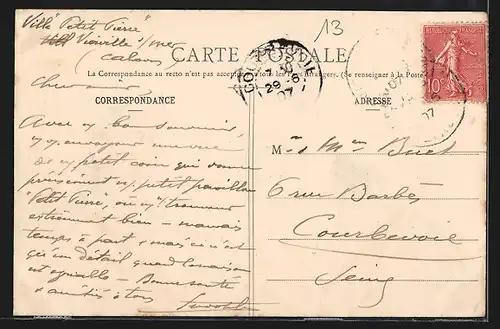 Villa "Petit Pierre"
Vierville s/mer
(Calvados)
13
CARTE POSTALE
La Correspondance au recto n'est pas acceptée par tous les pays étrangers. (Se renseigner à la Poste)
CORRESPONDANCE
ADRESSE
29
07
10
Cher ami,
Avec n/ bon souvenir,
n/ envoyons une vue
de n/ petit coin qui donne
précisément n/ petit pavillon
"Petit Pierre", où n/ trouvons
extrêmement bien — mauvais
temps à part, mais ce n'est
qu'un détail quand la maison
est agréable — Bonne santé
& amitiés à tous
M. & Mme
6 rue Barbès
Courbevoie
Seine